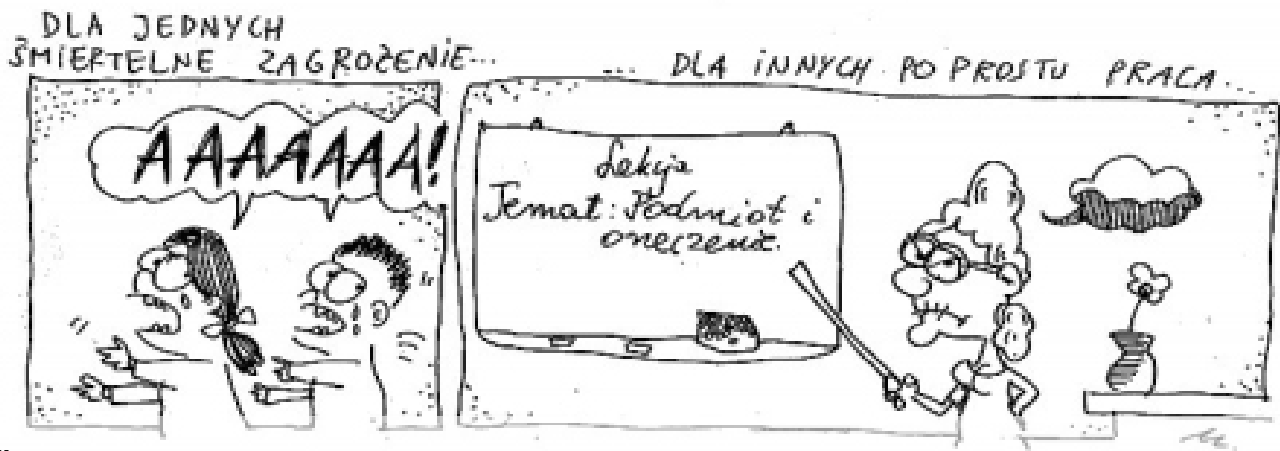 DLA JEDNYCH
ŚMIERTELNE ZAGROŻENIE...
... DLA INNYCH PO PROSTU PRACA...
AAAAAAA!
Lekcja
Temat: Podmiot i
orzeczenie.